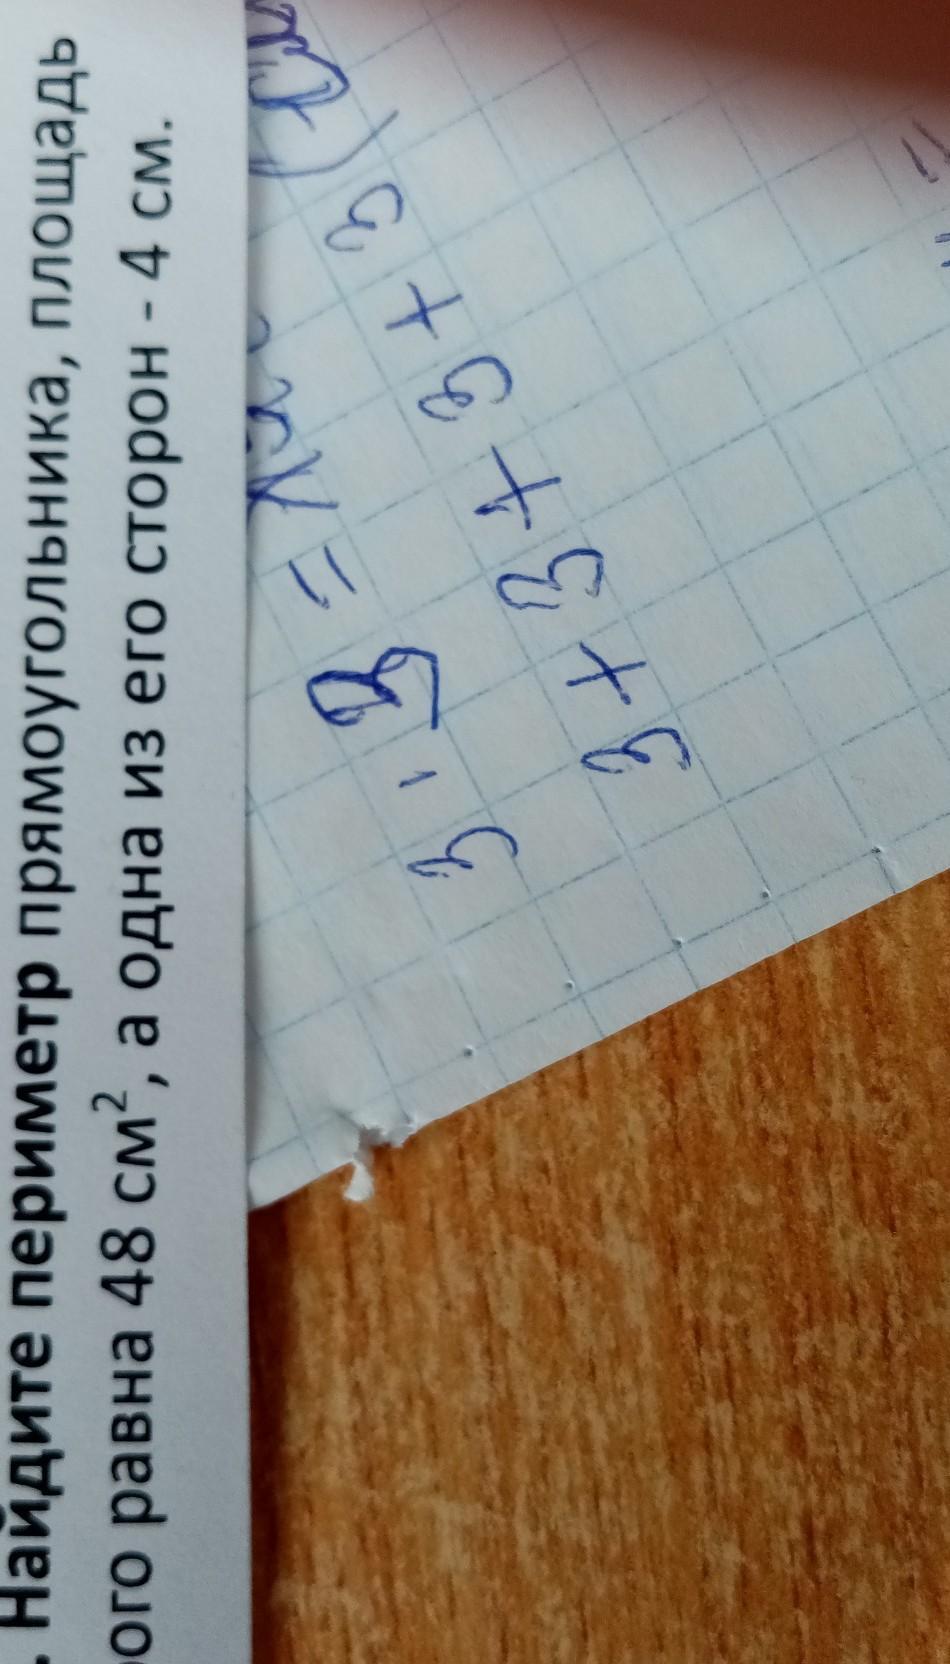 . Найдите периметр прямоугольника, площадь
ого равна 48 см², а одна из его сторон - 4 см.
3 · 3 =
3 + 3 + 3 + 3